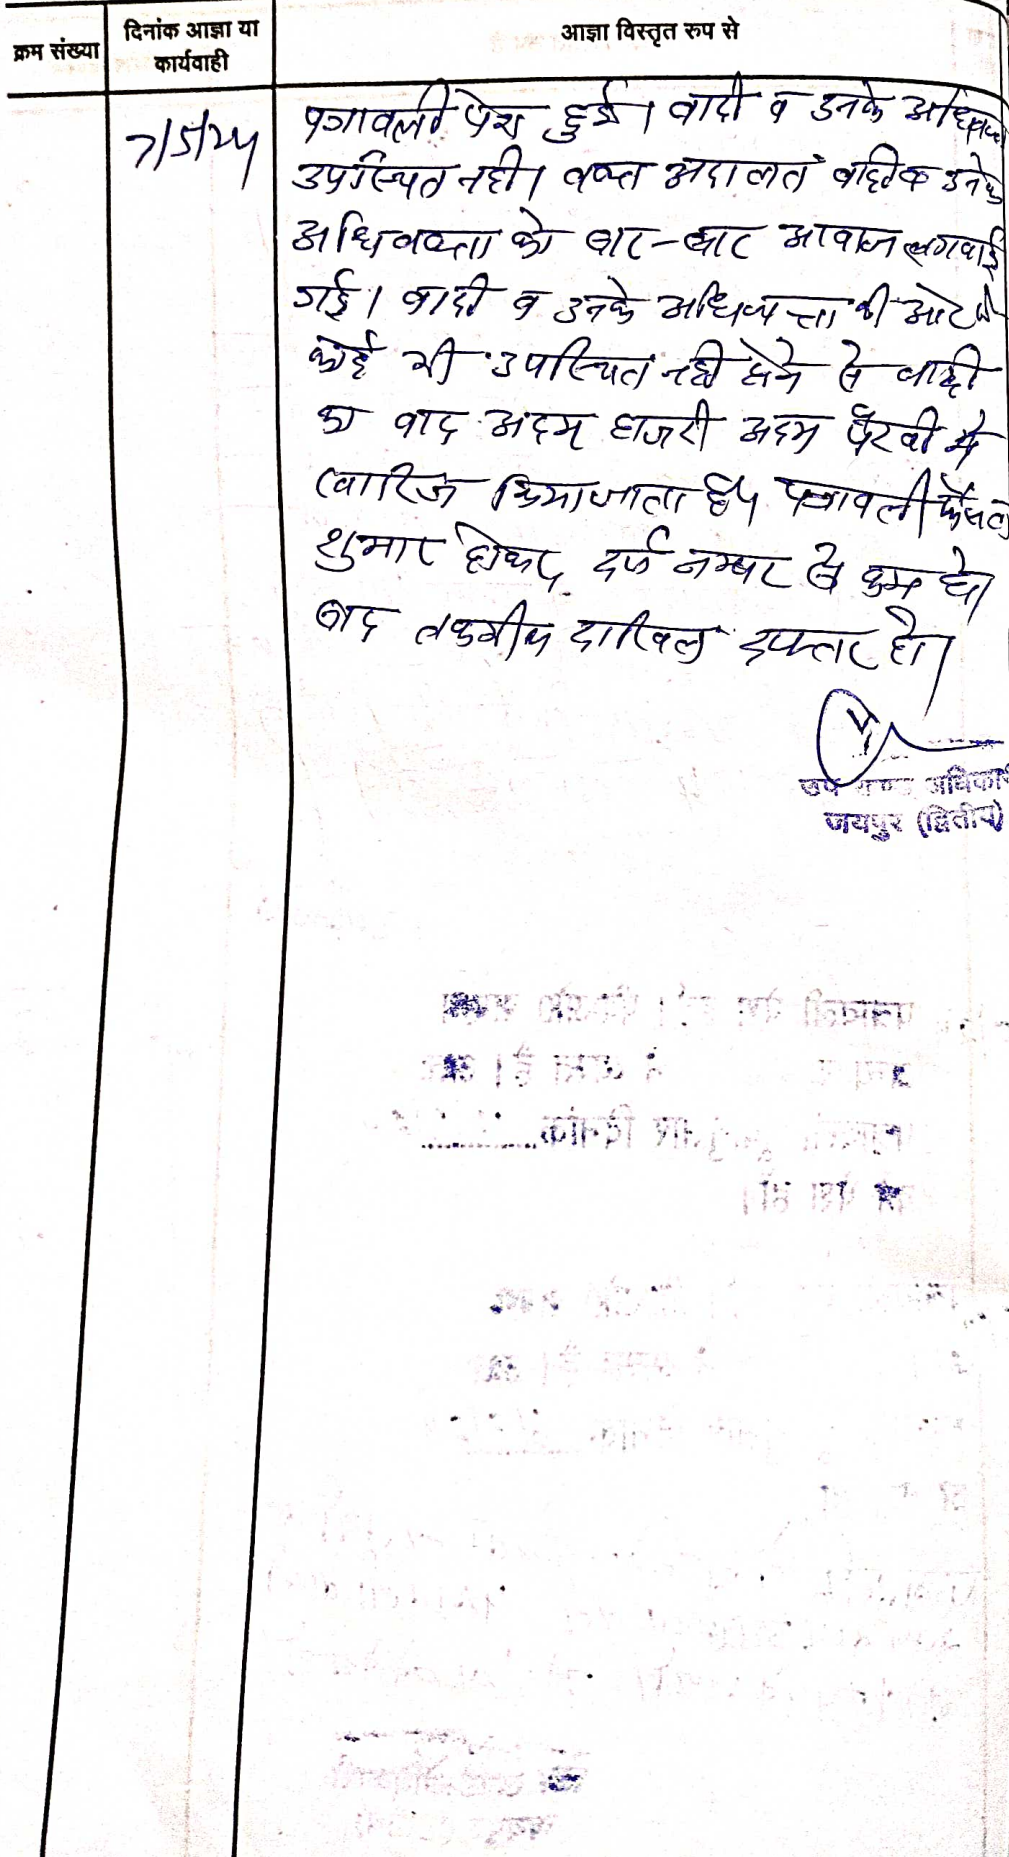 क्रम संख्या
दिनांक आज्ञा या
कार्यवाही
आज्ञा विस्तृत रुप से
7/5/24
पत्रावली पेश हुई। वादी व उनके अधिवक्ता
उपस्थित नही। वक्त अदालत वादी व उनके
अधिवक्ता को बार-बार आवाज लगवाई
गई। वादी व उनके अधिवक्ता की ओर से
कोई भी उपस्थित नही होने से वादी
का वाद अदम हाजरी अदम पैरवी मे
खारिज किया जाता है। पत्रावली फैसल
शुमार होकर दर्ज नम्बर से कम हो।
बाद तकमील दाखिल दफ्तर हो।
उप खण्ड अधिकारी
जयपुर (द्वितीय)